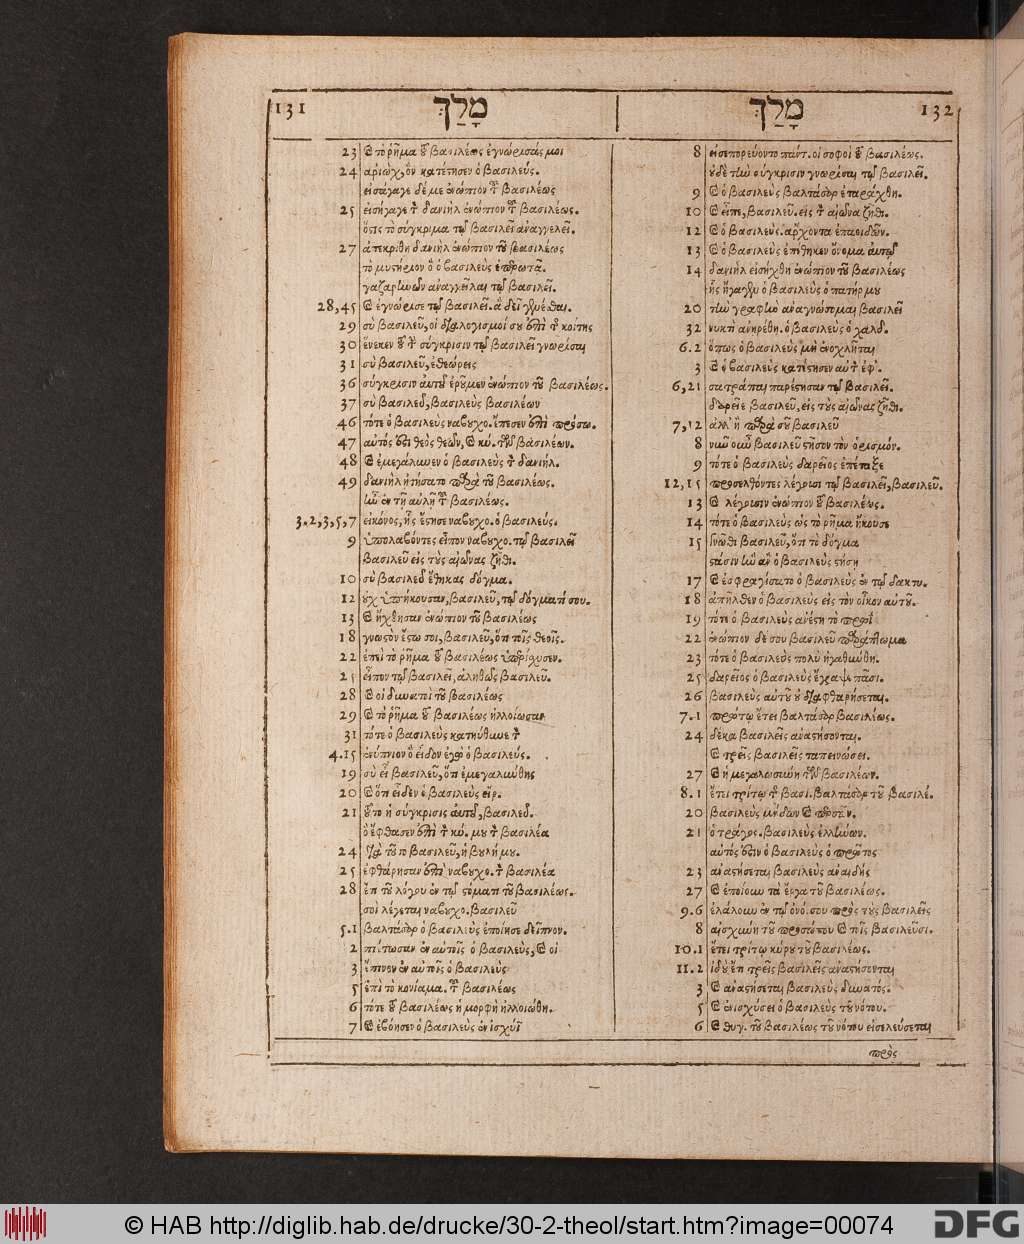 131 מָלַךְ
מָלַךְ 132
23 καὶ τὸ ῥῆμα τοῦ βασιλέως ἐγνώρισάς μοι
24 ἀριὼχ, ὃν κατέστησεν ὁ βασιλεύς.
εἰσάγαγε δέ με ἐνώπιον τοῦ βασιλέως
25 εἰσήγαγε τὸν δανιὴλ ἐνώπιον τοῦ βασιλέως.
ὅστις τὸ σύγκριμα τῷ βασιλεῖ ἀναγγελεῖ.
27 ἀπεκρίθη δανιὴλ ἐνώπιον τοῦ βασιλέως
τὸ μυστήριον ὃ ὁ βασιλεὺς ἐπερωτᾷ.
γαζαρηνῶν ἀναγγεῖλαι τῷ βασιλεῖ.
28,45 καὶ ἐγνώρισε τῷ βασιλεῖ. ἃ δεῖ γενέσθαι.
29 σὺ βασιλεῦ, οἱ διαλογισμοί σου ἐπὶ τῆς κοίτης
30 ἕνεκεν τοῦ τὴν σύγκρισιν τῷ βασιλεῖ γνωρίσαι
31 σὺ βασιλεῦ, ἐθεώρεις
36 σύγκρισιν αὐτοῦ ἐροῦμεν ἐνώπιον τοῦ βασιλέως.
37 σὺ βασιλεῦ, βασιλεὺς βασιλέων
46 τότε ὁ βασιλεὺς ναβουχο. ἔπεσεν ἐπὶ πρόσω.
47 αὐτός ἐστι θεὸς θεῶν, καὶ κύ. τῶν βασιλέων.
48 καὶ ἐμεγάλυνεν ὁ βασιλεὺς τὸν δανιήλ.
49 δανιὴλ ᾐτήσατο παρὰ τοῦ βασιλέως.
ἦν ἐν τῇ αὐλῇ τοῦ βασιλέως.
3.2,3,5,7 εἰκόνος, ἧς ἔστησε ναβουχο. ὁ βασιλεύς.
9 ὑπολαβόντες εἶπον ναβουχο. τῷ βασιλεῖ
βασιλεῦ εἰς τοὺς αἰῶνας ζῆθι.
10 σὺ βασιλεῦ ἔθηκας δόγμα.
12 οὐχ ὑπήκουσαν, βασιλεῦ, τῷ δόγματί σου.
13 καὶ ἤχθησαν ἐνώπιον τοῦ βασιλέως
18 γνωστὸν ἔστω σοι, βασιλεῦ, ὅτι τοῖς θεοῖς.
22 ἐπεὶ τὸ ῥῆμα τοῦ βασιλέως ὑπερίσχυσεν.
25 εἶπον τῷ βασιλεῖ, ἀληθῶς βασιλεῦ.
28 καὶ οἱ δυνασταὶ τοῦ βασιλέως
29 καὶ τὸ ῥῆμα τοῦ βασιλέως ἠλλοίωσαν
31 τότε ὁ βασιλεὺς κατηύθυνε τὸν
4.15 ἐνύπνιον ὃ εἶδον ἐγὼ ὁ βασιλεύς.
19 σὺ εἶ βασιλεῦ, ὅτι ἐμεγαλύνθης
20 καὶ ὅτι εἶδεν ὁ βασιλεὺς εἲρ.
21 τοῦτο ἡ σύγκρισις αὐτοῦ, βασιλεῦ.
ὃ ἔφθασεν ἐπὶ τὸν κύ. μου τὸν βασιλέα
24 διὰ τοῦτο βασιλεῦ, ἡ βουλή μου.
25 ἐφθάρησαν ἐπὶ ναβουχο. τὸν βασιλέα
28 ἔτι τοῦ λόγου ἐν τῷ στόματι τοῦ βασιλέως.
σοὶ λέγεται ναβουχο. βασιλεῦ
5.1 βαλτάσαρ ὁ βασιλεὺς ἐποίησε δεῖπνον.
2 πιέτωσαν ἐν αὐτοῖς ὁ βασιλεὺς, καὶ οἱ
3 ἔπινον ἐν αὐτοῖς ὁ βασιλεὺς
5 ἐπὶ τὸ κονίαμα. τοῦ βασιλέως
6 τότε τοῦ βασιλέως ἡ μορφὴ ἠλλοιώθη.
7 καὶ ἐβόησεν ὁ βασιλεὺς ἐν ἰσχύϊ
8 εἰσεπορεύοντο πάντ. οἱ σοφοὶ τοῦ βασιλέως.
οὐδὲ τὴν σύγκρισιν γνωρίσαι τῷ βασιλεῖ.
9 καὶ ὁ βασιλεὺς βαλτάσαρ ἐταράχθη.
10 καὶ εἶπε, βασιλεῦ. εἰς τὸν αἰῶνα ζῆθι.
12 καὶ ὁ βασιλεὺς. ἄρχοντα ἐπαοιδῶν.
13 καὶ ὁ βασιλεὺς ἐπέθηκεν ὄνομα αὐτῷ
14 δανιὴλ εἰσήχθη ἐνώπιον τοῦ βασιλέως
ἧς ἤγαγεν ὁ βασιλεὺς ὁ πατήρ μου
20 τὴν γραφὴν ἀναγνώσομαι βασιλεῖ
32 νυκτὶ ἀνῃρέθη. ὁ βασιλεὺς ὁ χαλδ.
6.2 ὅπως ὁ βασιλεὺς μὴ ἐνοχλῆται
3 καὶ ὁ βασιλεὺς κατέστησεν αὐτὸν ἐφ'.
6,21 σατράπαι παρέστησαν τῷ βασιλεῖ.
δαρεῖε βασιλεῦ, εἰς τοὺς αἰῶνας ζῆθι.
7,12 ἀλλ' ἢ παρὰ σοῦ βασιλεῦ
8 νῦν οὖν βασιλεῦ στῆσον τὸν ὁρισμόν.
9 τότε ὁ βασιλεὺς δαρεῖος ἐπέταξε
12,15 προσελθόντες λέγουσι τῷ βασιλεῖ, βασιλεῦ.
13 καὶ λέγουσιν ἐνώπιον τοῦ βασιλέως.
14 τότε ὁ βασιλεὺς ὡς τὸ ῥῆμα ἤκουσε
15 γνῶθι βασιλεῦ, ὅτι τὸ δόγμα
στάσιν ἣν ἂν ὁ βασιλεὺς στήσῃ
17 καὶ ἐσφραγίσατο ὁ βασιλεὺς ἐν τῷ δακτυ.
18 ἀπῆλθεν ὁ βασιλεὺς εἰς τὸν οἶκον αὐτοῦ.
19 τότε ὁ βασιλεὺς ἀνέστη τὸ πρωῒ
22 ἐνώπιον δὲ σοῦ βασιλεῦ παράπτωμα
23 τότε ὁ βασιλεὺς πολὺ ἠγαθύνθη.
25 δαρεῖος ὁ βασιλεὺς ἔγραψε πᾶσι.
26 βασιλεὺς αὐτοῦ οὐ διαφθαρήσεται.
7.1 πρώτῳ ἔτει βαλτάσαρ βασιλέως.
24 δέκα βασιλεῖς ἀναστήσονται.
καὶ τρεῖς βασιλεῖς ταπεινώσει.
27 καὶ ἡ μεγαλωσύνη τῶν βασιλέων.
8.1 ἔτει τρίτῳ τῆς βασι. βαλτάσαρ τοῦ βασιλέ.
20 βασιλεὺς μήδων καὶ περσῶν.
21 ὁ τράγος. βασιλεὺς ἑλλήνων.
αὐτός ἐστιν ὁ βασιλεὺς ὁ πρῶτος
23 ἀναστήσεται βασιλεὺς ἀναιδὴς
27 καὶ ἐποίουν τὰ ἔργα τοῦ βασιλέως.
9.6 ἐλάλουν ἐν τῷ ὀνό. σου πρὸς τοὺς βασιλεῖς
8 αἰσχύνη τοῦ προσώπου καὶ τοῖς βασιλεῦσι.
10.1 ἔτει τρίτῳ κύρου τοῦ βασιλέως.
11.2 ἰδοὺ ἔτι τρεῖς βασιλεῖς ἀναστήσονται
3 καὶ ἀναστήσεται βασιλεὺς δυνατός.
5 καὶ ἐνισχύσει ὁ βασιλεὺς τοῦ νότου.
6 καὶ θυγ. τοῦ βασιλέως τοῦ νότου εἰσελεύσεται
πρὸς
© HAB http://diglib.hab.de/drucke/30-2-theol/start.htm?image=00074
DFG